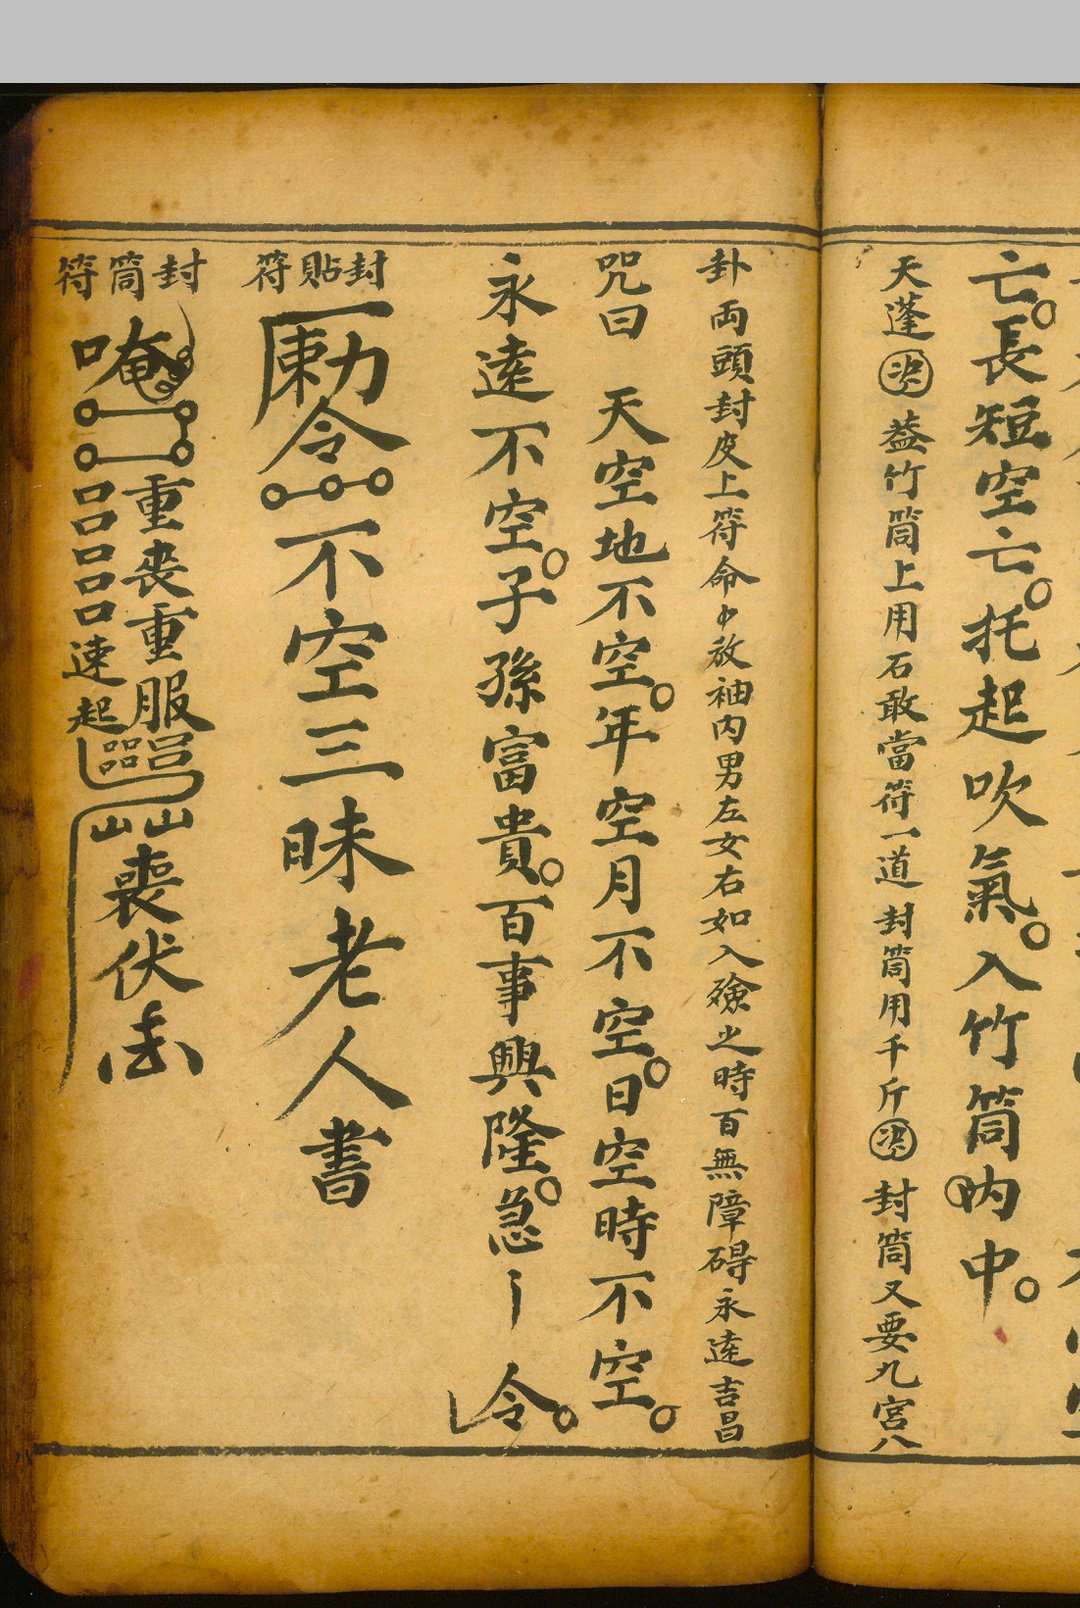 亡。長短空亡。托起吹氣。入竹筒内中。
天蓬 蓋竹筒上用石敢當符一道封筒用千斤 封筒又要九宮八
卦両頭封皮上符命中放袖内男左女右如入殮之時百無障碍永遠吉昌
咒曰 天空地不空。年空月不空。日空時不空。
永遠不空。子孫富貴。百事興隆。急 令。
封貼符
勅令 不空三昧老人書
封筒符
唵 重喪重服 速起 喪伏